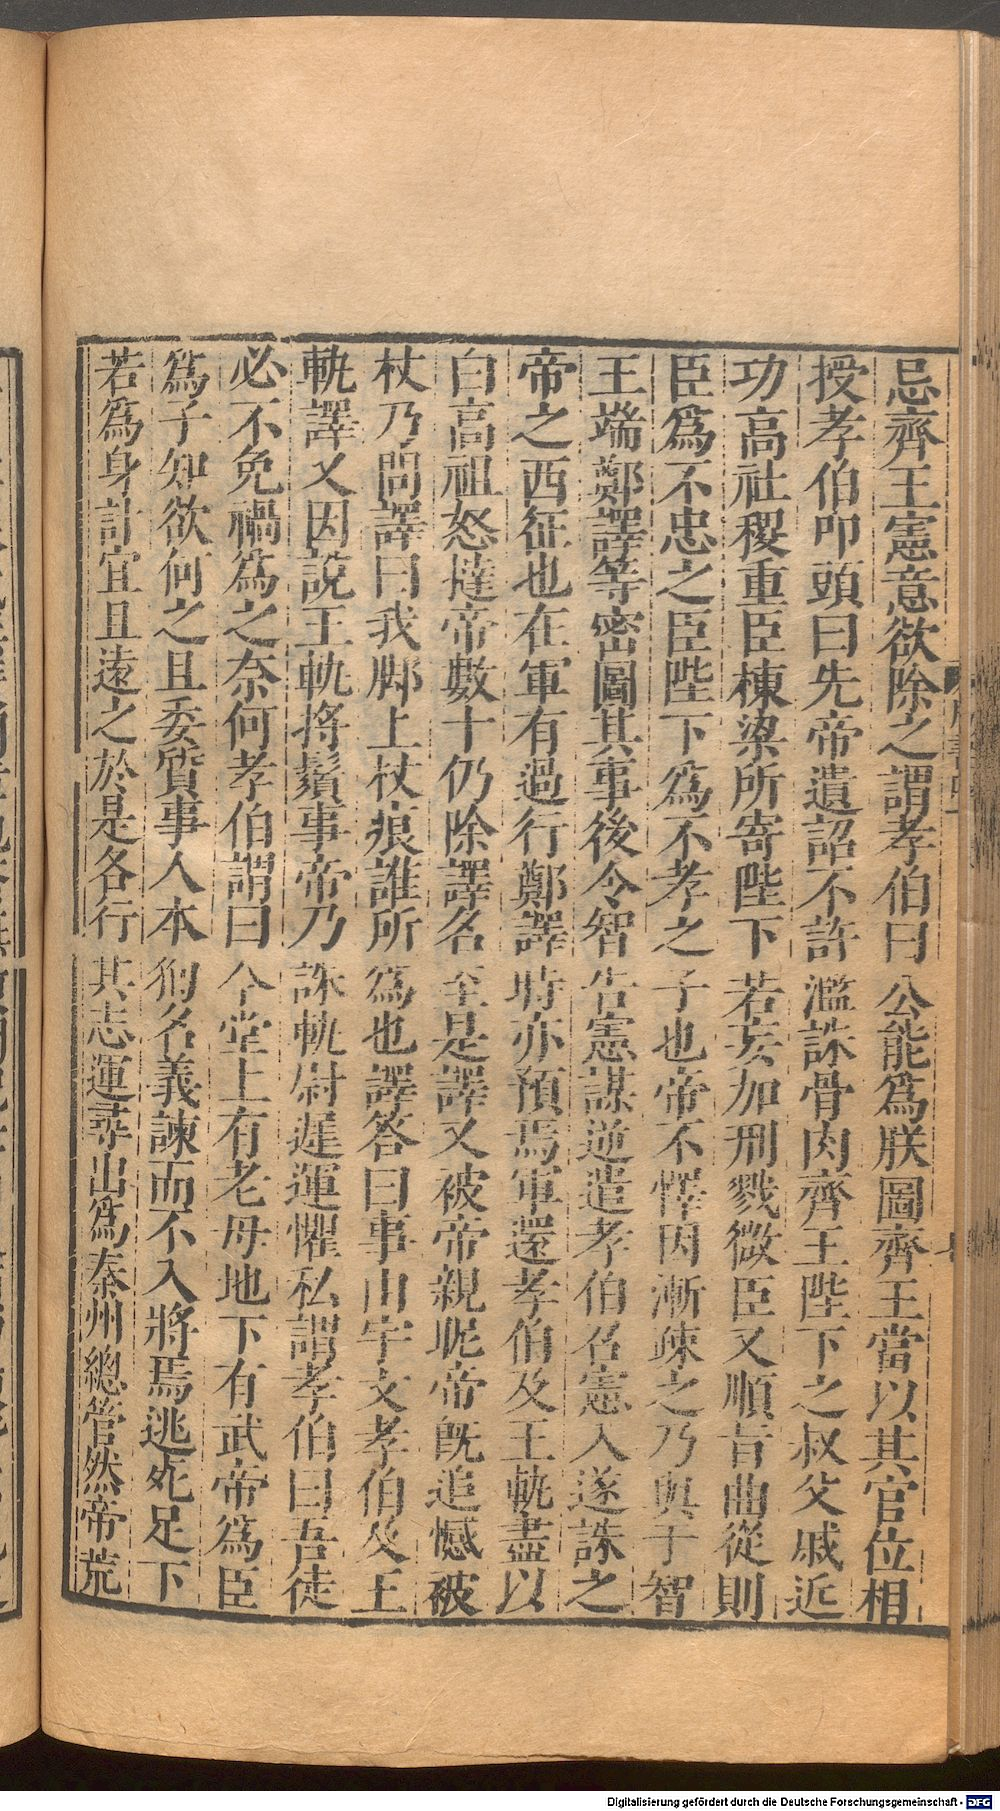 忌齊王憲意欲除之謂孝伯曰公能爲朕圖齊王當以其官位相
授孝伯叩頭曰先帝遺詔不許濫誅骨肉齊王陛下之叔父戚近
功高社稷重臣棟梁所寄陛下若妄加刑戮微臣又順旨曲從則
臣爲不忠之臣陛下爲不孝之子也帝不懌因漸疎之乃與于智
王端鄭譯等密圖其事後令智告憲謀逆遣孝伯召憲入遂誅之
帝之西征也在軍有過行鄭譯時亦預焉軍還孝伯及王軌盡以
白高祖怒撻帝數十仍除譯名至是譯又被帝親昵帝旣追憾被
杖乃問譯曰我脚上杖痕誰所爲也譯答曰事由宇文孝伯及王
軌譯又因說王軌捋鬚事帝乃誅軌尉遲運懼私謂孝伯曰吾徒
必不免禍爲之奈何孝伯謂曰今堂上有老母地下有武帝爲臣
爲子知欲何之且委質事人本徇名義諫而不入將焉逃死足下
若爲身計宜且遠之於是各行其志運尋出爲秦州總管然帝荒
Digitalisierung gefördert durch die Deutsche Forschungsgemeinschaft - DFG